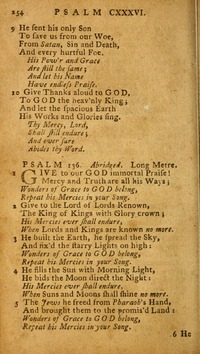 254 PSALM CXXXVI.
9 He sent his only Son
To save us from our Woe,
From Satan, Sin and Death,
And every hurtful Foe.
His Pow'r and Grace
Are still the same;
And let his Name
Have endless Praise.
10 Give Thanks aloud to GOD,
To GOD the heav'nly King;
And let the spacious Earth
His Works and Glories sing.
Thy Mercy, Lord,
Shall still endure;
And ever sure
Abides thy Word.
PSALM 136. Abridged. Long Metre.
1 GIVE to our GOD immortal Praise!
Mercy and Truth are all his Ways;
Wonders of Grace to GOD belong,
Repeat his Mercies in your Song.
2 Give to the Lord of Lords Renown,
The King of Kings with Glory crown;
His Mercies ever shall endure,
When Lords and Kings are known no more.
3 He built the Earth, he spread the Sky,
And fix'd the starry Lights on high:
Wonders of Grace to GOD belong,
Repeat his Mercies in your Song.
4 He fills the Sun with Morning Light,
He bids the Moon direct the Night:
His Mercies ever shall endure,
When Suns and Moons shall shine no more.
5 The Jews he freed from Pharaoh's Hand,
And brought them to the promis'd Land:
Wonders of Grace to GOD belong,
Repeat his Mercies in your Song.
6 He